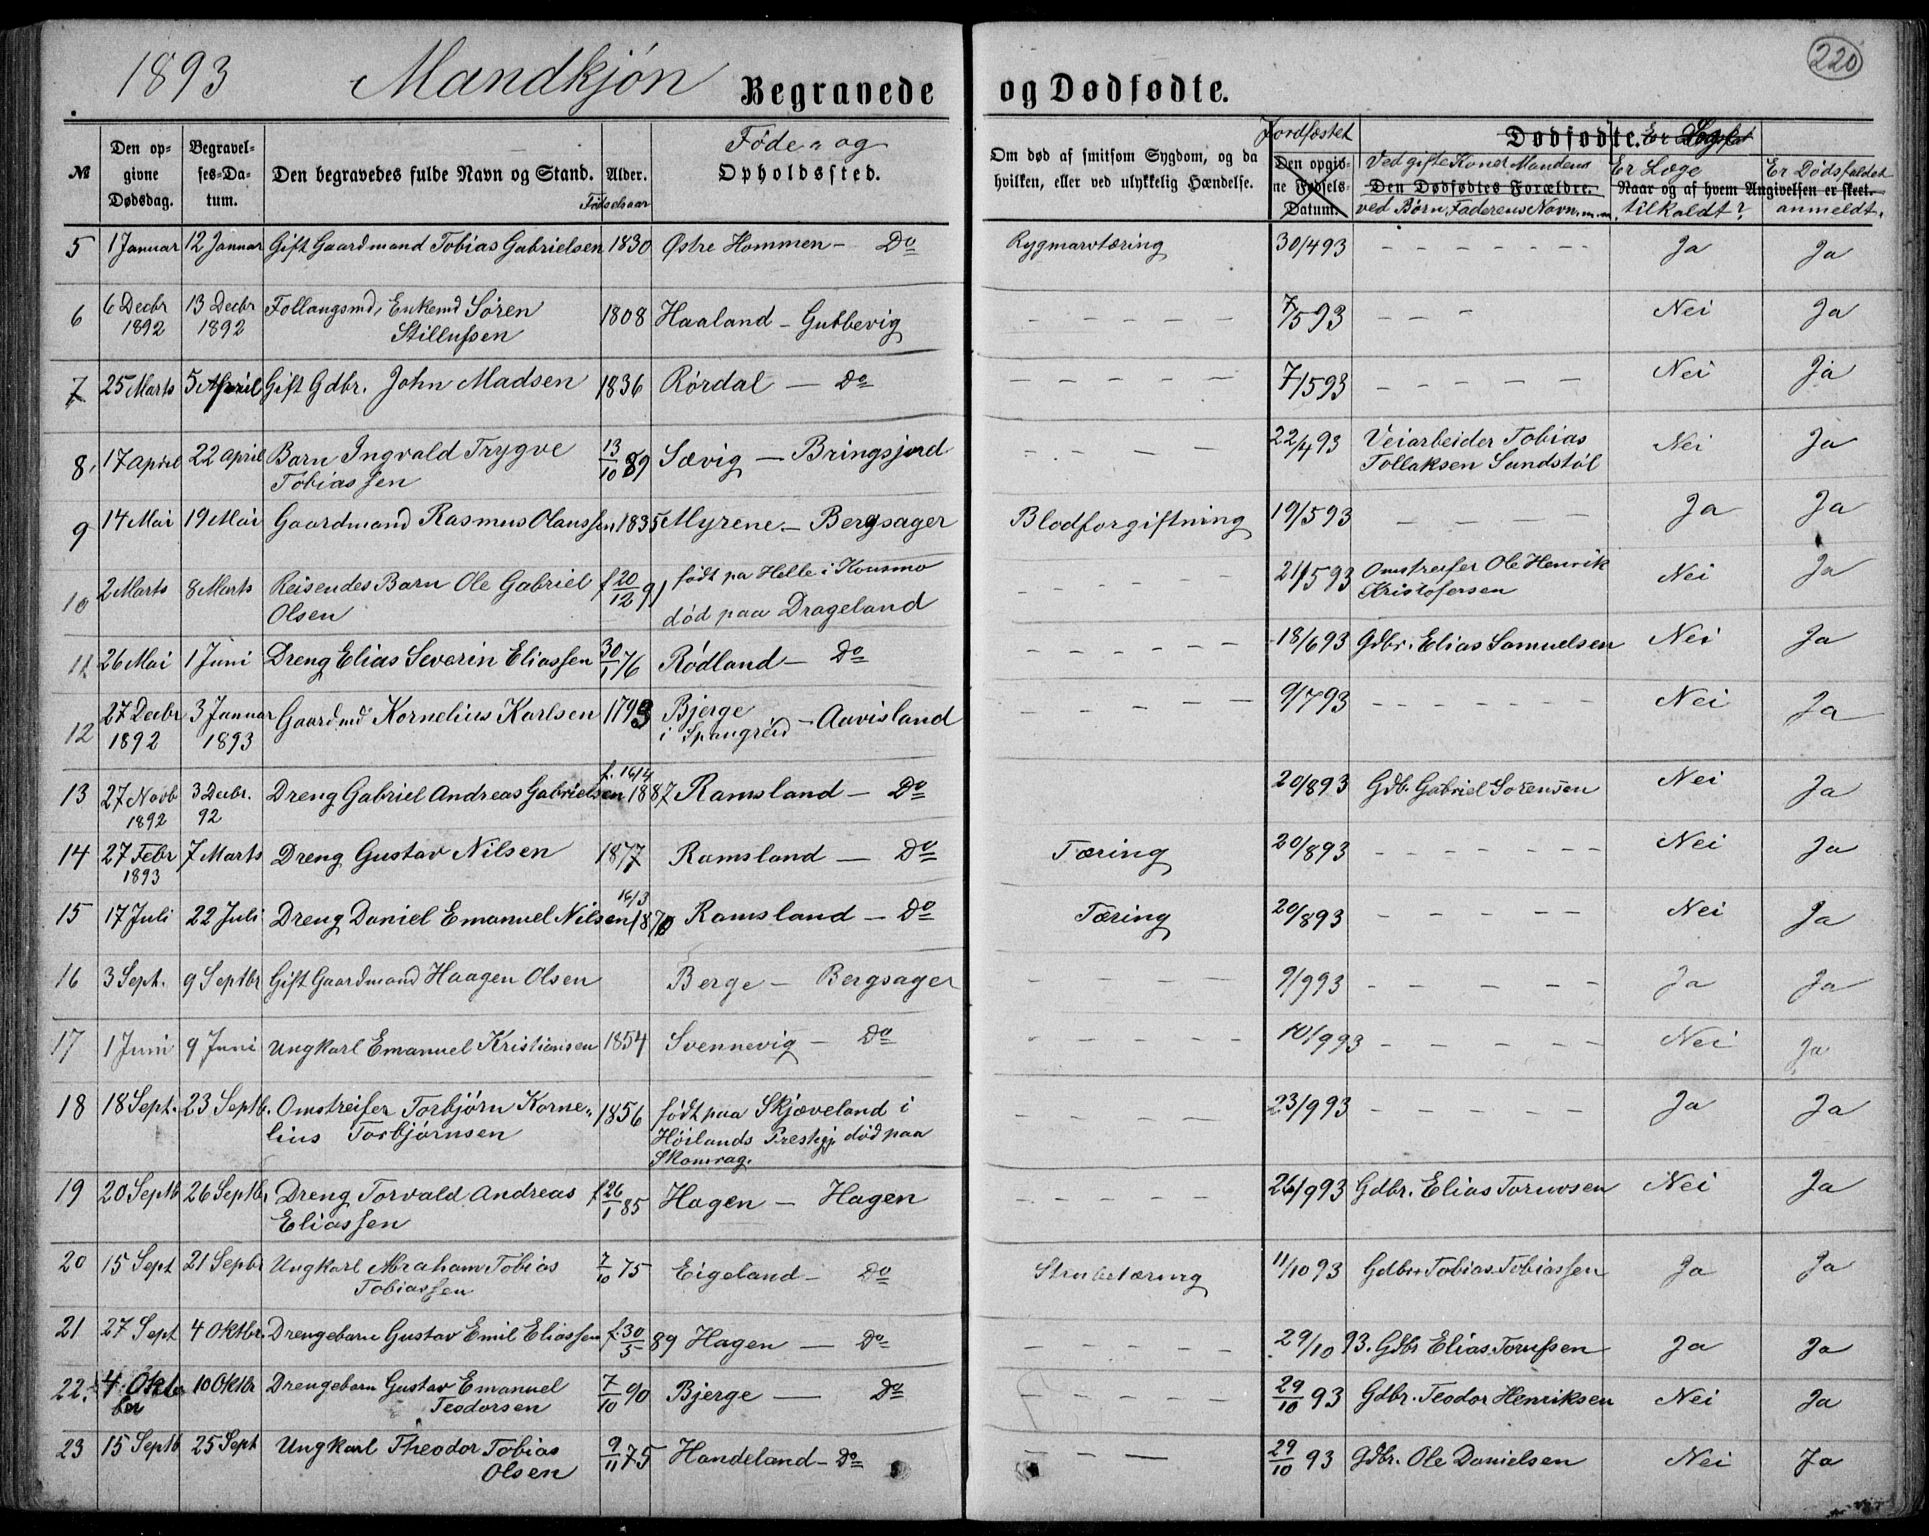 220
1893 Mandkjøn Begravede og Dødfødte.
№ | Den opgivne Dødsdag. | Begravelses-Datum. | Den begravedes fulde Navn og Stand. | Alder. Fødselsaar | Føde- og Opholdssted. | Om død af smitsom Sygdom, og da hvilken, eller ved ulykkelig Hændelse. | Jordfæstet Den opgivne Fødsels-Datum. | Dødfødte. Ved gifte Koner Mandens Den Dødfødtes Forældre. ved Børn, Faderens Navn | Er Læge Naar og af hvem Angivelsen er skeet. tilkaldt? | Er Dødsfaldet anmeldt.
5 | 1 Januar | 12 Januar | Gift Gaardmand Tobias Gabrielsen | 1830 | Østre Hommen - Do | Rygmarvtæring | 30/4 93 | - - - | Ja | Ja
6 | 6 Decbr 1892 | 13 Decbr 1892 | Follaugsmd, Enkemd Søren Stillufsen | 1808 | Haaland - Gubbevig | - - - | 7/5 93 | - - - | Nei | Ja
7 | 25 Marts | 5 April | Gift Gdbr. John Madsen | 1836 | Rørdal - Do | - - - | 7/5 93 | - - - | Nei | Ja
8. | 17 April | 22 April | Barn Ingvald Trygve Tobiassen | 13/10 89 | Sævig - Bringsjord | - - - | 22/4 93 | Veiarbeider Tobias Tollaksen Sandstøl | Nei | Ja
9 | 14 Mai | 19 Mai | Gaardmand Rasmus Olaussen | 1835 | Myrene - Bergsager | Blodforgiftning | 19/5 93 | - - - | Ja | Ja
10 | 2 Marts | 8 Marts | Reisendes Barn Ole Gabriel Olsen | f 20/12 91 | født paa Helle i Konsmo død paa Drageland | - - - | 21/5 93 | Omstreifer Ole Henrik Kristofersen | Nei | Ja
11 | 26 Mai | 1 Juni | Dreng Elias Severin Eliassen | 30/1 76 | Rødland - Do | - - - | 18/6 93 | Gdbr. Elias Samuelsen | Nei | Ja
12 | 27 Decbr 1892 | 3 Januar 1893 | Gaardmd Kornelius Karlsen | 1793 | Bjerge i Spangreid - Aavisland | - - - | 9/7 93 | - - - | Nei | Ja
13 | 27 Novb 1892 | 3 Decbr. 92 | Dreng Gabriel Andreas Gabrielsen | f. 16/4 1887 | Ramsland - Do | | 20/8 93 | Gdb. Gabriel Sørensen | Nei | Ja
14 | 27 Febr 1893 | 7 Marts | Dreng Gustav Nilsen | 1877 | Ramsland - Do | Tæring | 20/8 93 | - - - | Nei | Ja
15 | 17 Juli | 22 Juli | Dreng Daniel Emanuel Nilsen | 16/3 1870 | Ramsland - Do | Tæring | 20/8 93 | - - - | Nei | Ja
16 | 3 Sept. | 9 Septbr | Gift Gaardmand Haagen Olsen | | Berge - Bergsager | - - - | 9/9 93 | - - - | Ja | Ja
17 | 1 Juni | 9 Juni | Ungkarl Emanuel Kristiansen | 1854 | Svennevig - Do | - - - | 10/9 93 | - - - | Nei | Ja
18 | 18 Sept. | 23 Septb. | Omstreifer Torbjørn Kornelius Torbjørnsen | 1856 | født paa Skjæveland i Høilands Prestegj. død paa Skomrag. | - - - | 23/9 93 | - - - | Ja | Ja
19 | 20 Septb | 26 Septb. | Dreng Torvald Andreas Eliassen | f 26/1 85 | Hagen - Hagen | - - - | 26/9 93 | Gdbr. Elias Toruvsen | Nei | Ja
20 | 15 Sept | 21 Sepbr | Ungkarl Abraham Tobias Tobiassen | 7/10 75 | Eigeland - Do | Strubetæring | 11/10 93 | Gdbr. Tobias Tobiassen | Ja | Ja
21 | 27 Sept | 4 Oktbr. | Drengebarn Gustav Emil Eliassen | f. 30/5 89 | Hagen - Do | - - - | 29/10 93. | Gdbr Elias Torufsen | Ja | Ja
22. | 4 Oktober | 10 Oktbr | Drengebarn Gustav Emanuel Teodorsen | 7/10 90 | Bjerge - Do | | 29/10 93 | Gdbr. Teodor Henriksen | Nei | Ja
23 | 15 Septb | 25 Sept | Ungkarl Theodor Tobias Olsen | 9/11 75 | Handeland - Do | | 29/10 93 | Gdbr. Ole Danielsen | Nei | Ja